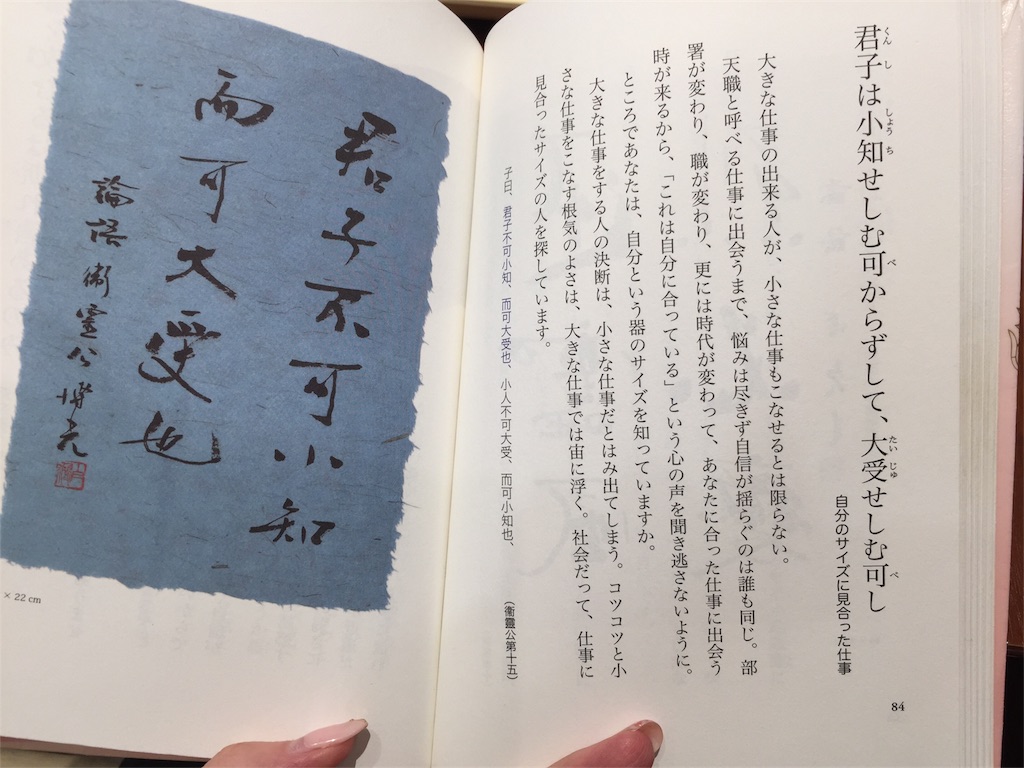 君子は小知せしむ可からずして、大受せしむ可し
自分のサイズに見合った仕事
大きな仕事の出来る人が、小さな仕事もこなせるとは限らない。
天職と呼べる仕事に出会うまで、悩みは尽きず自信が揺らぐのは誰も同じ。部
署が変わり、職が変わり、更には時代が変わって、あなたに合った仕事に出会う
時が来るから、「これは自分に合っている」という心の声を聞き逃さないように。
ところであなたは、自分という器のサイズを知っていますか。
大きな仕事をする人の決断は、小さな仕事だとはみ出てしまう。コツコツと小
さな仕事をこなす根気のよさは、大きな仕事では宙に浮く。社会だって、仕事に
見合ったサイズの人を探しています。
子曰、君子不可小知、而可大受也、小人不可大受、而可小知也、
(衞靈公第十五)
84
君子不可小知
而可大受也
論語衞靈公
× 22 cm